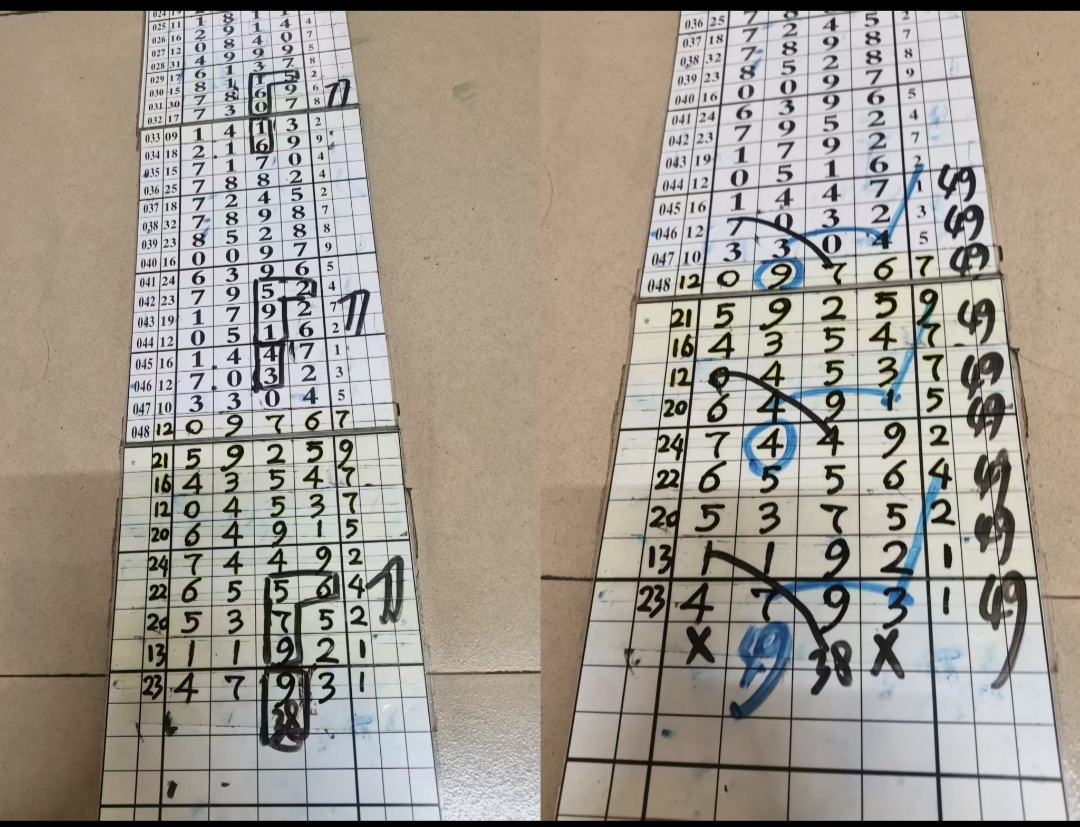 025 11 1 8 1 1
026 16 2 9 1 4 4
027 12 0 8 4 0 7
028 31 4 9 9 9 5
029 17 6 1 3 7 8
030 15 8 1 1 5 2
031 30 7 8 6 9 6
032 17 7 3 0 7 8
033 09 1 4 1 3 2
034 18 2 1 6 9 9
035 15 7 1 7 0 4
036 25 7 8 8 2 4
037 18 7 2 4 5 2
038 32 7 8 9 8 7
039 23 8 5 2 8 8
040 16 0 0 9 7 9
041 24 6 3 9 6 5
042 23 7 9 5 2 4
043 19 1 7 9 2 7
044 12 0 5 1 6 2
045 16 1 4 4 7 1
046 12 7 0 3 2 3
047 10 3 3 0 4 5
048 12 0 9 7 6 7
21 5 9 2 5 9
16 4 3 5 4 7
12 0 4 5 3 7
20 6 4 9 1 5
24 7 4 4 9 2
22 6 5 5 6 4
20 5 3 7 5 2
13 1 1 9 2 1
23 4 7 9 3 1
38
036 25
037 18 7 2 4 5 2
038 32 7 8 9 8 7
039 23 8 5 2 8 8
040 16 0 0 9 7 9
041 24 6 3 9 6 5
042 23 7 9 5 2 4
043 19 1 7 9 2 7
044 12 0 5 1 6 2
045 16 1 4 4 7 1 49
046 12 7 0 3 2 3 49
047 10 3 3 0 4 5 49
048 12 0 9 7 6 7
21 5 9 2 5 9 49
16 4 3 5 4 7
12 0 4 5 3 7 49
20 6 4 9 1 5 49
24 7 4 4 9 2
22 6 5 5 6 4 49
20 5 3 7 5 2 49
13 1 1 9 2 1
23 4 7 9 3 1 49
X 49 38 X